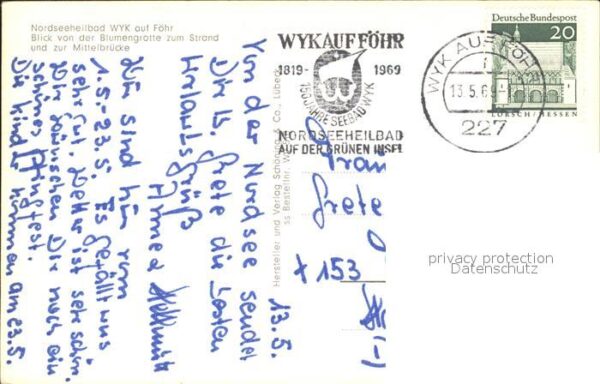 Nordseeheilbad WYK auf Föhr
Blick von der Blumengrotte zum Strand
und zur Mittelbrücke
13.5.
Von der Nordsee sendet
Dir lb. Grete die besten
Urlaubsgrüße
Hellmut
Wir sind hier vom
1.5.-23.5. Es gefällt uns
sehr gut. Wetter ist sehr schön.
Wir wünschen Dir noch ein
schönes Pfingstfest.
Die Kinder kommen am 23.5.
Hersteller und Verlag Schöning & Co., Lübeck
Bestellnr.
WYK AUF FÖHR
1819- -1969
150 JAHRE SEEBAD WYK
NORDSEEHEILBAD
AUF DER GRÜNEN INSEL
WYK AUF FÖHR
13.5.69
227
Deutsche Bundespost
20
LORSCH/HESSEN
Frau
Grete
153
privacy protection
Datenschutz